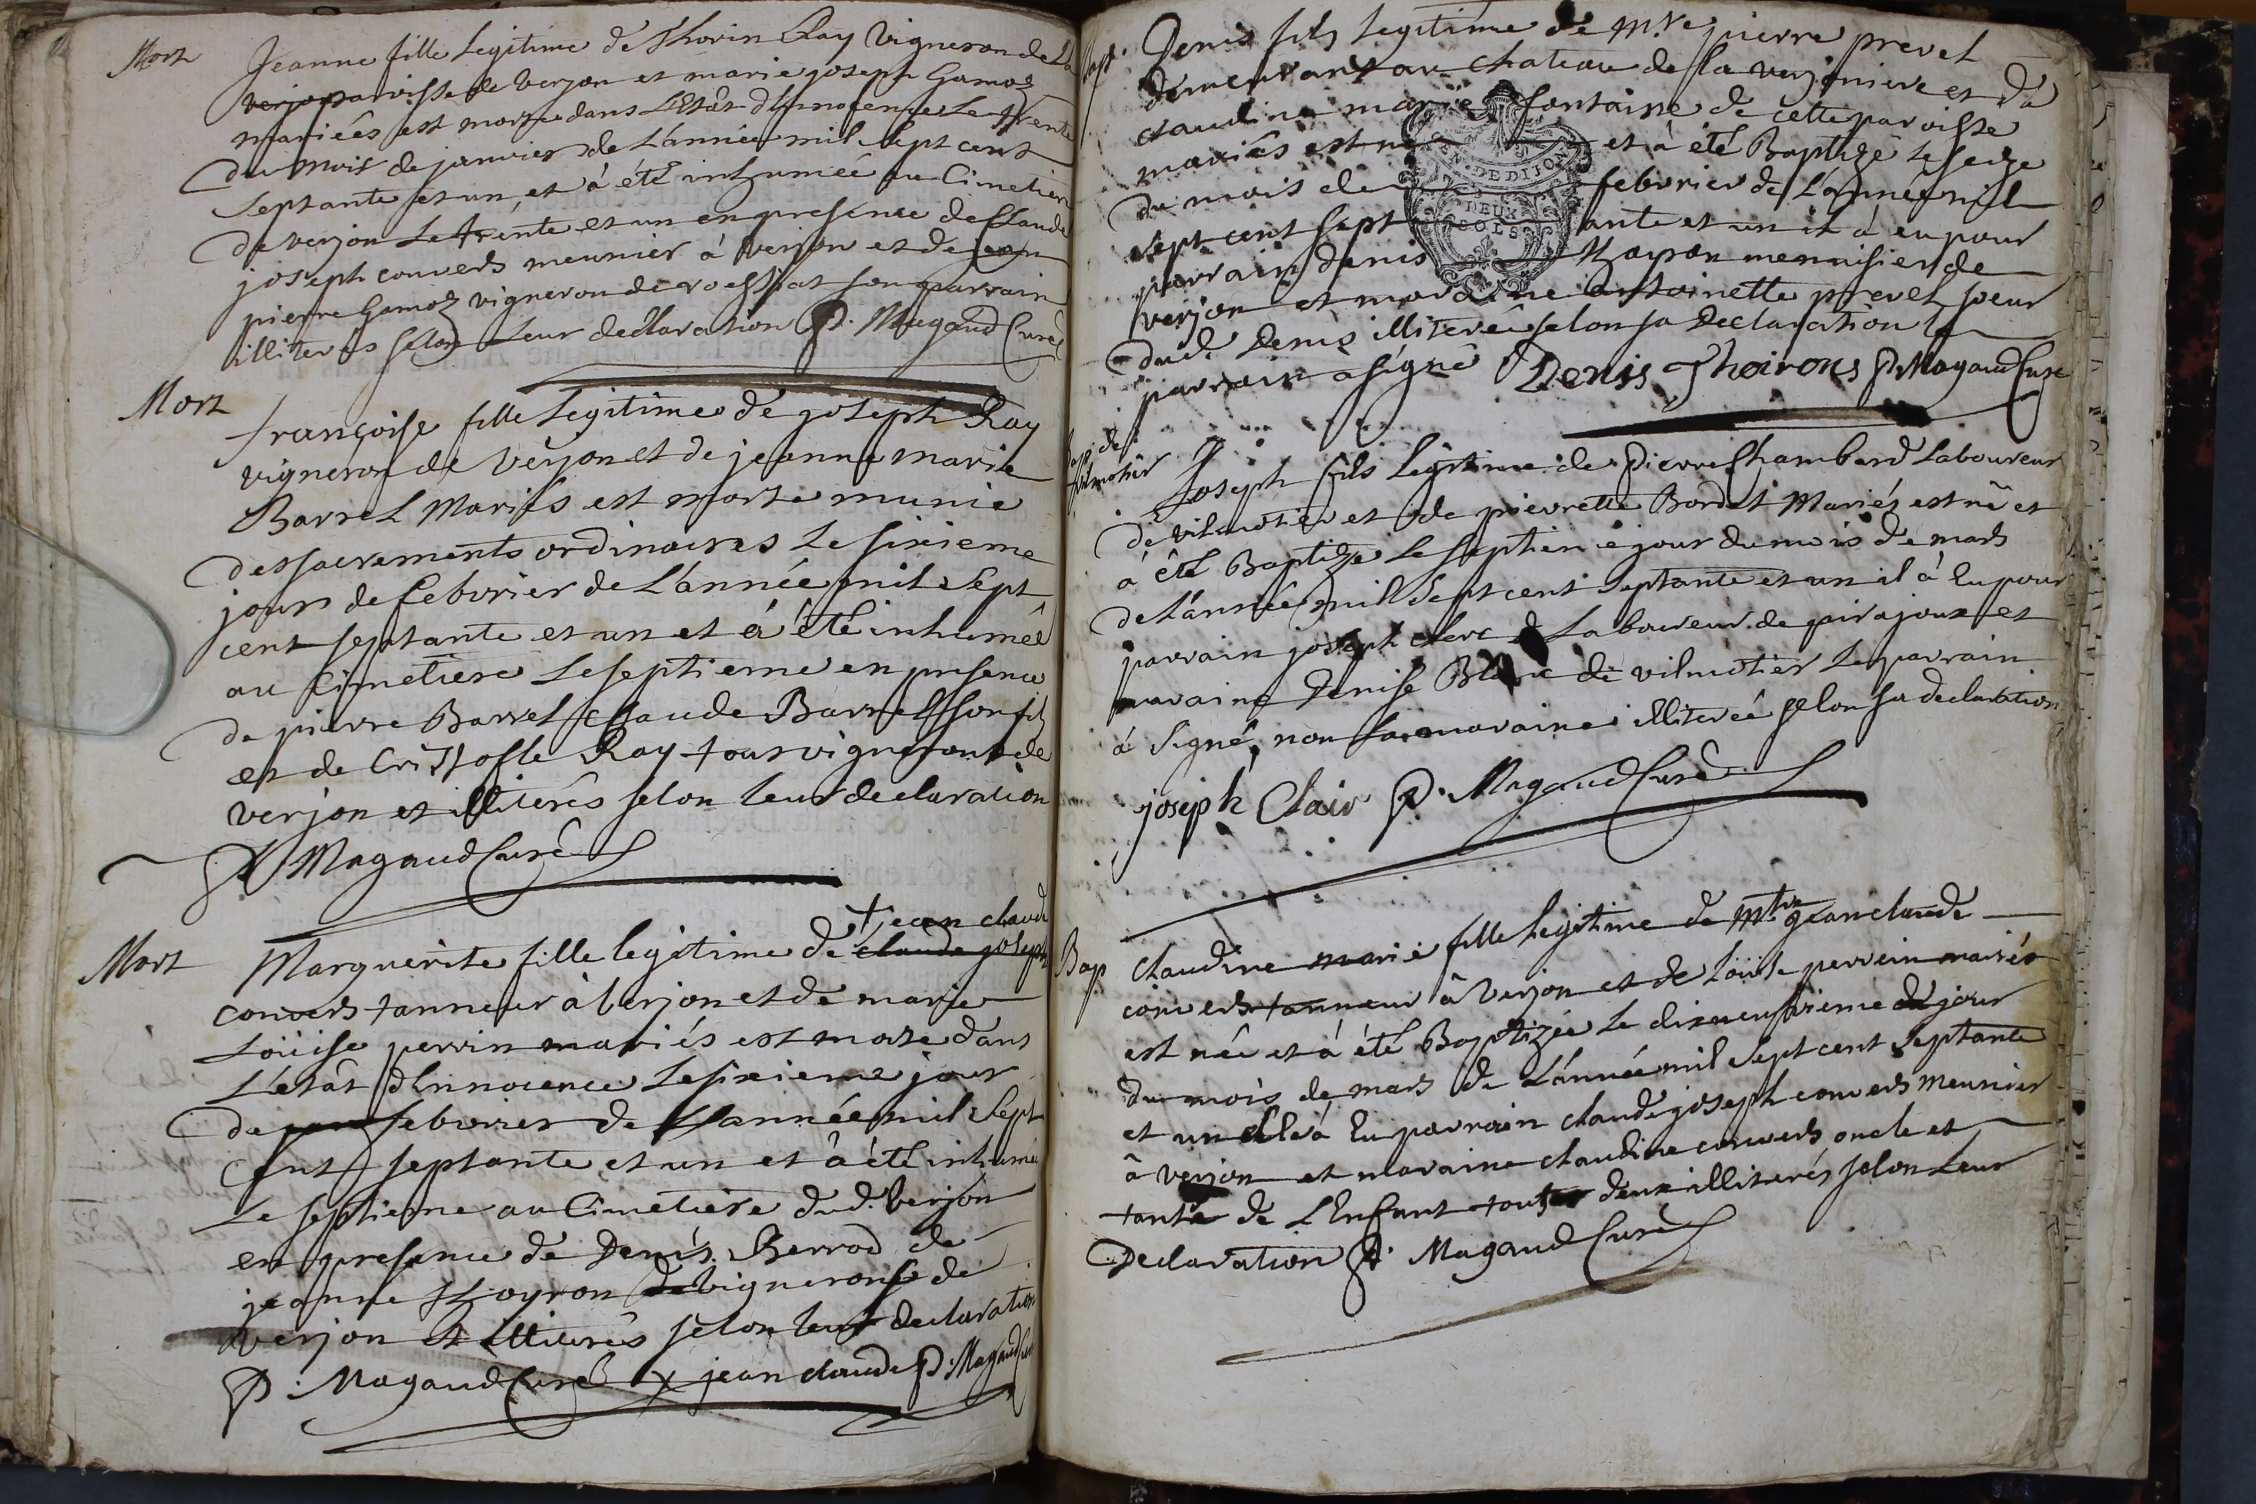 Mort
Jeanne fille legitime de Thorin Ray Vigneron de La
paroisse de Verjon et marie joseph Gamoz
mariées est morte dans L'Etât d'Innocence Le trente
du mois de janvier de L'année mil Sept cent
Septante et un, et à été inhumeé au Cimetiere
de verjon Le trente et un en presence de Claude
joseph convers meunier à verjon et de jean
pierre Gamoz vigneron de son parrain
illiterés selon Leur declaration P. Magaud Curé
Mort
françoise fille legitime de joseph Ray
vigneron de verjon et de jeanne marie
Barrel Mariés est morte munie
des sacrements ordinaires Le sixieme
jours de febvrier de L'année mil Sept
cent septante et un et à été inhumeé
au Cimetiere Le septieme en presence
de pierre Barrel Claude Barrel son fils
et de Cristofle Ray tous vignerons de
verjon et illiterés selon leur declaration
P. Magaud Curé
Mort
Marguerite fille legitime de claude joseph † jean claude
convers tanneur à verjon et de marie
Loüise perrin mariés est morte dans
L'etât d'Innocence Le sixieme jour
de febvrier de L'année mil Sept
Cent septante et un et à été inhumé
Le septieme au Cimetiere dud. verjon
en presence de Denis Berrod de
jeanne Thoyron vignerons de
verjon et illiterés selon leur declaration
P. Magaud Curé x jean claude P. Magaud Curé
Bapt.
Denis fils legitime de Mre pierre prevel
demeurant au chateau de la verjoniere et de
claudine marie fontaine de cette paroisse
mariés est né et à été Baptizé le seize
du mois de febvrier de L'année mil
sept cent sept ante et un il à eu pour
parrain denis Thoyron menuisier de
verjon et maraine antoinette prevel soeur
dud. Denis illitereé selon sa declaration Le
parrain a signé Denis Thoirons P. Magaud Curé
GEN. DE DIJON
DEUX
SOLS
Bap. de
vilmotier
Joseph fils legitime de Pierre Chambard Laboureur
de vilmotier et de pierrette Bordet Mariés est né et
à été Baptizé le septieme jour du mois de mars
de L'année mil Sept cent septante et un il à Eu pour
parrain joseph clerc Laboureur de pirajoux et
maraine Denise Blanc de vilmotier Le parrain
à Signé, non la maraine illitereé selon sa declaration
joseph Clair P. Magaud Curé
Bap
Claudine marie fille legitime de Mtre jean claude
convers tanneur à verjon et de Loüise perrin mariés
est née et à été Baptizée le dixneufvieme jour
du mois de mars de L'année mil Sept cent Septante
et un elle à Eu parrain claude joseph convers meunier
à verjon et maraine claudine convers oncle et
tante de L'Enfant tous deux illiterés selon Leur
Declaration P. Magaud Curé